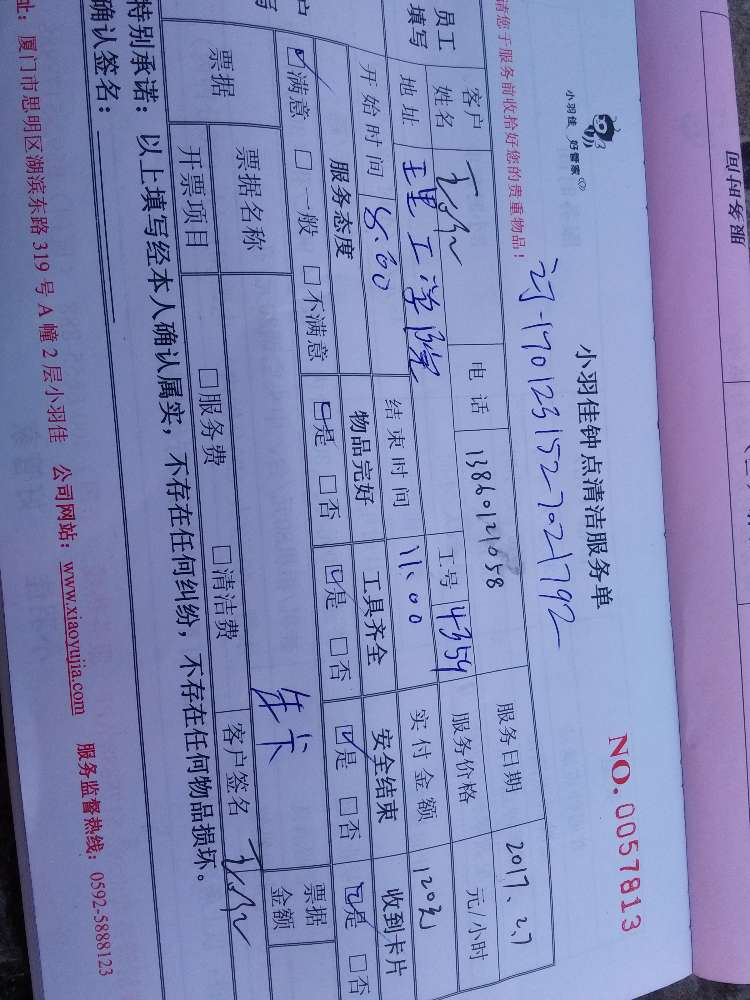 服务时间
小羽佳 好管家
小羽佳钟点清洁服务单
NO.0057813
订1701231527021792
请您于服务前收拾好您的贵重物品！
员工填写
客户姓名
电话 13860121058
服务日期 2017.2.7
地址 理工学院
工号 4354
服务价格 元/小时
开始时间 8.00
结束时间 11.00
实付金额 120元
服务态度 物品完好 工具齐全 安全结束 收到卡片
☑满意 □一般 □不满意 ☑是 □否 ☑是 □否 ☑是 □否 ☑是 □否
票据 票据名称 年卡 票据金额
开票项目 □服务费 □清洁费 客户签名
特别承诺：以上填写经本人确认属实，不存在任何纠纷，不存在任何物品损坏。
确认签名：
址：厦门市思明区湖滨东路 319 号 A 幢 2 层小羽佳 公司网站：www.xiaoyujia.com 服务监督热线：0592-5888123